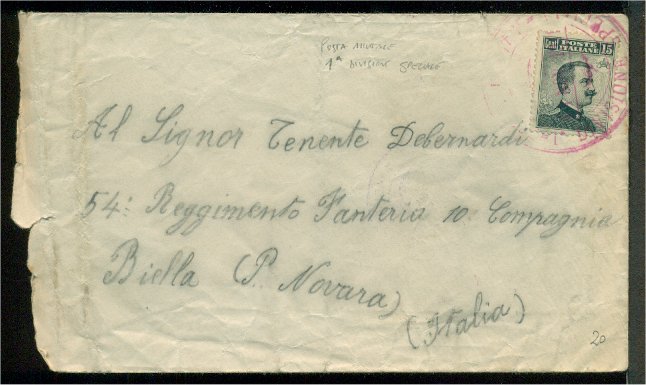 POSTA MILITARE
1ª DIVISIONE SPECIALE
Cent POSTE 15
ITALIANE
Al Signor Tenente Debernardi
54: Reggimento Fanteria 10: Compagnia
Biella (P. Novara)
(Italia)
20